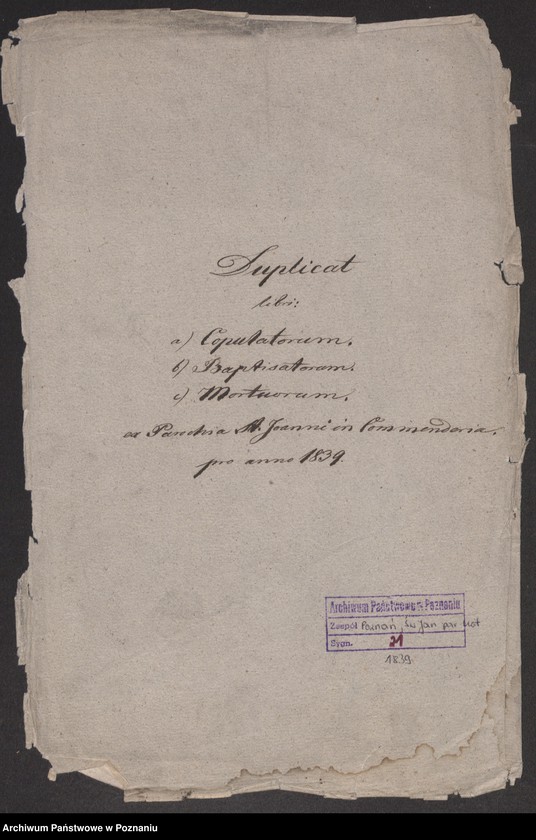 Duplicat
libri:
a) Copulatorum.
b) Baptisatorum.
c) Mortuorum.
ex Parochia St. Joanni in Commenderia.
pro anno 1839.
Archiwum Państwowe w Poznaniu
Zespół Poznań, Św Jan par kat
Sygn. 21
1839.
Archiwum Państwowe w Poznaniu